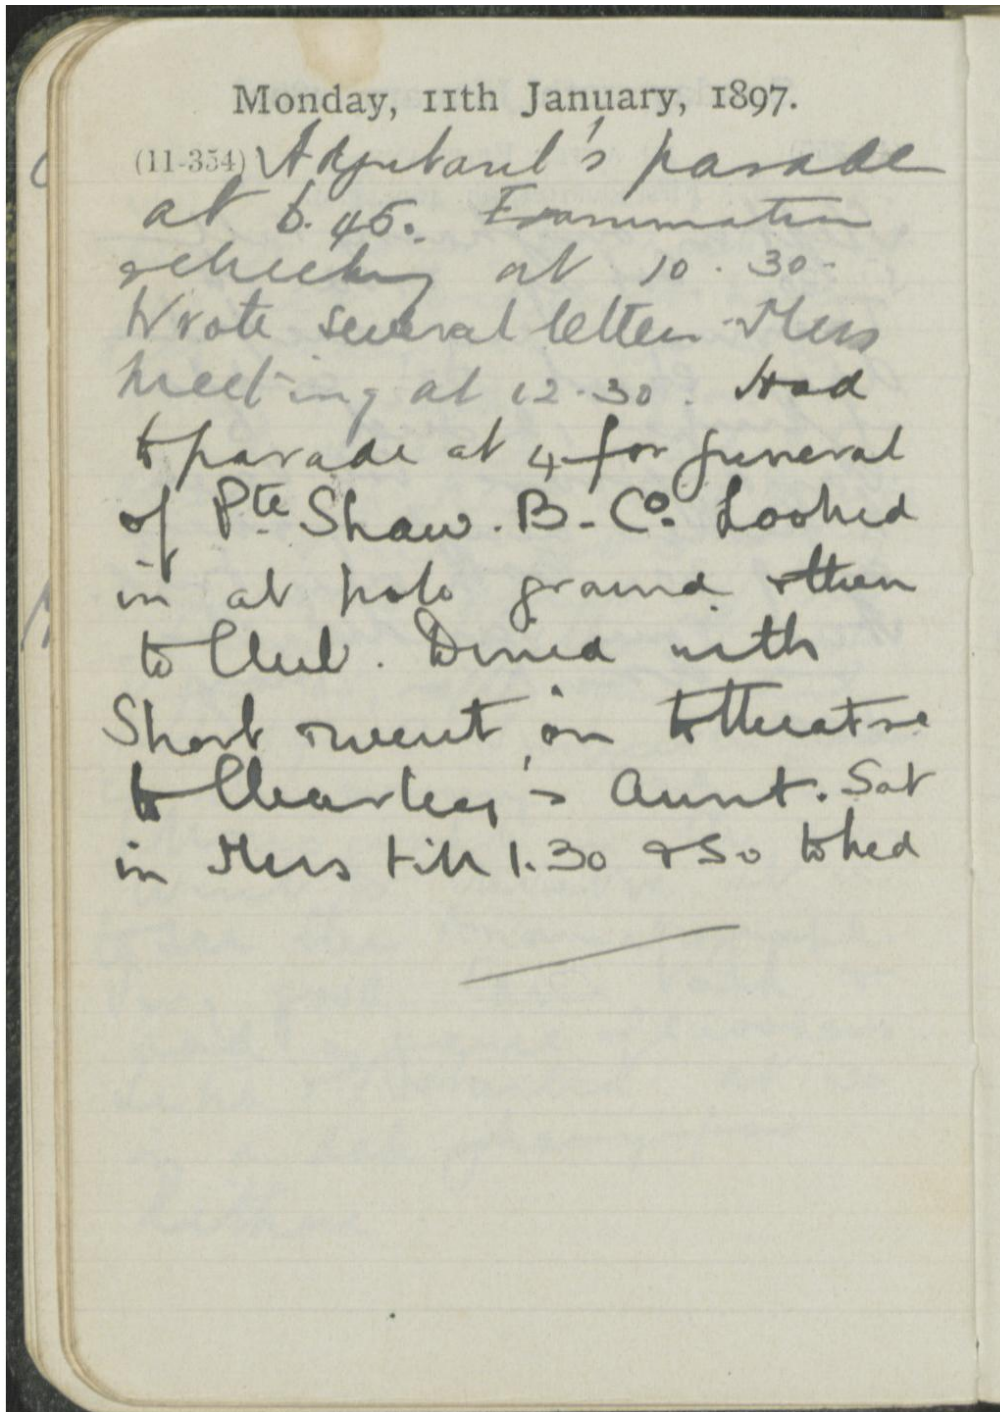 Monday, 11th January, 1897.
(11-354) Adjutant's parade
at 6.45. Examination
checking at 10.30.
Wrote several letters Mess
meeting at 12.30. Had
to parade at 4 for funeral
of Pte Shaw. B. Co. Looked
in at polo ground & then
to Club. Dined with
Short & went on to theatre
to Charley's Aunt. Sat
in Mess till 1.30 & so to bed